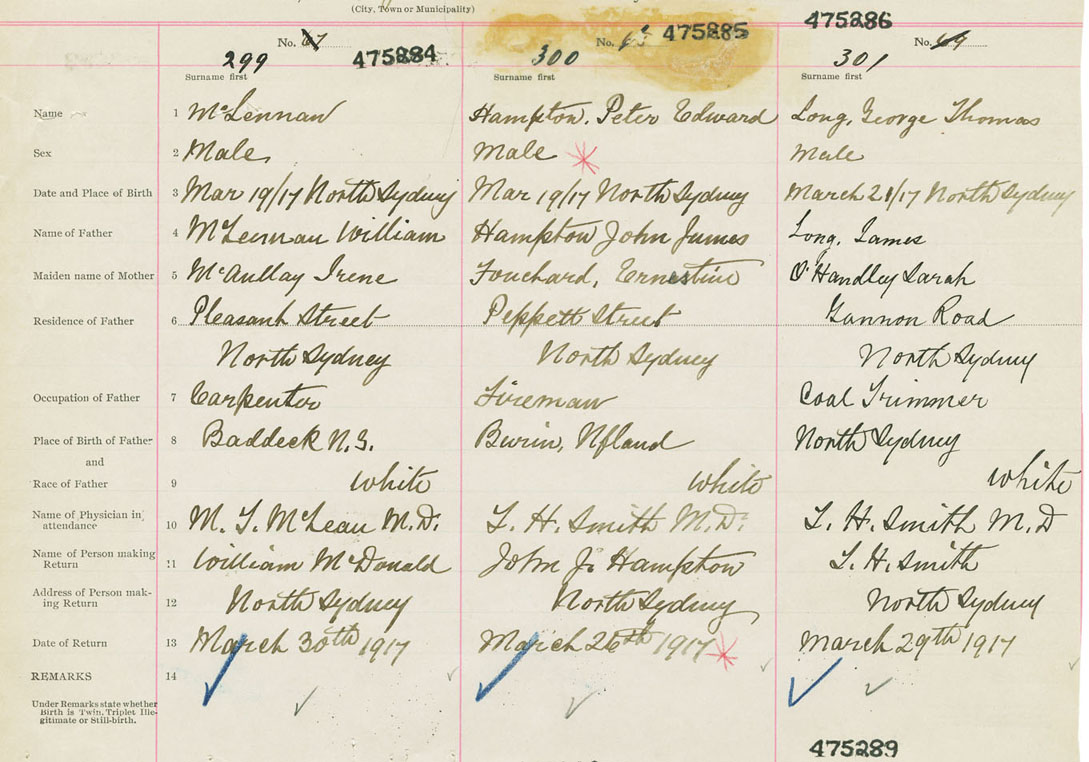 (City, Town or Municipality)
475286
No. 67 475284 No. 475285 No. 69
299 300 301
Surname first Surname first Surname first
Name 1 McLennan Hampton, Peter Edward Long, George Thomas
Sex 2 Male Male Male
Date and Place of Birth 3 Mar 19/17 North Sydney Mar 19/17 North Sydney March 21/17 North Sydney
Name of Father 4 McLennan William Hampton John James Long, James
Maiden name of Mother 5 McAullay Irene Fouchard, Ernestine O'Handley Sarah
Residence of Father 6 Pleasant Street Peppett Street Gannon Road
North Sydney North Sydney North Sydney
Occupation of Father 7 Carpenter Fireman Coal Trimmer
Place of Birth of Father 8 Baddeck N.S. Burin, Nfland North Sydney
and
Race of Father 9 white white white
Name of Physician in
attendance 10 M. T. McLean M.D. L. H. Smith M.D. L. H. Smith M.D
Name of Person making
Return 11 William McDonald John J. Hampton L. H. Smith
Address of Person mak-
ing Return 12 North Sydney North Sydney North Sydney
Date of Return 13 March 30th 1917 March 26th 1917 March 29th 1917
REMARKS 14
Under Remarks state whether
Birth is Twin, Triplet Ille-
gitimate or Still-birth.
475289